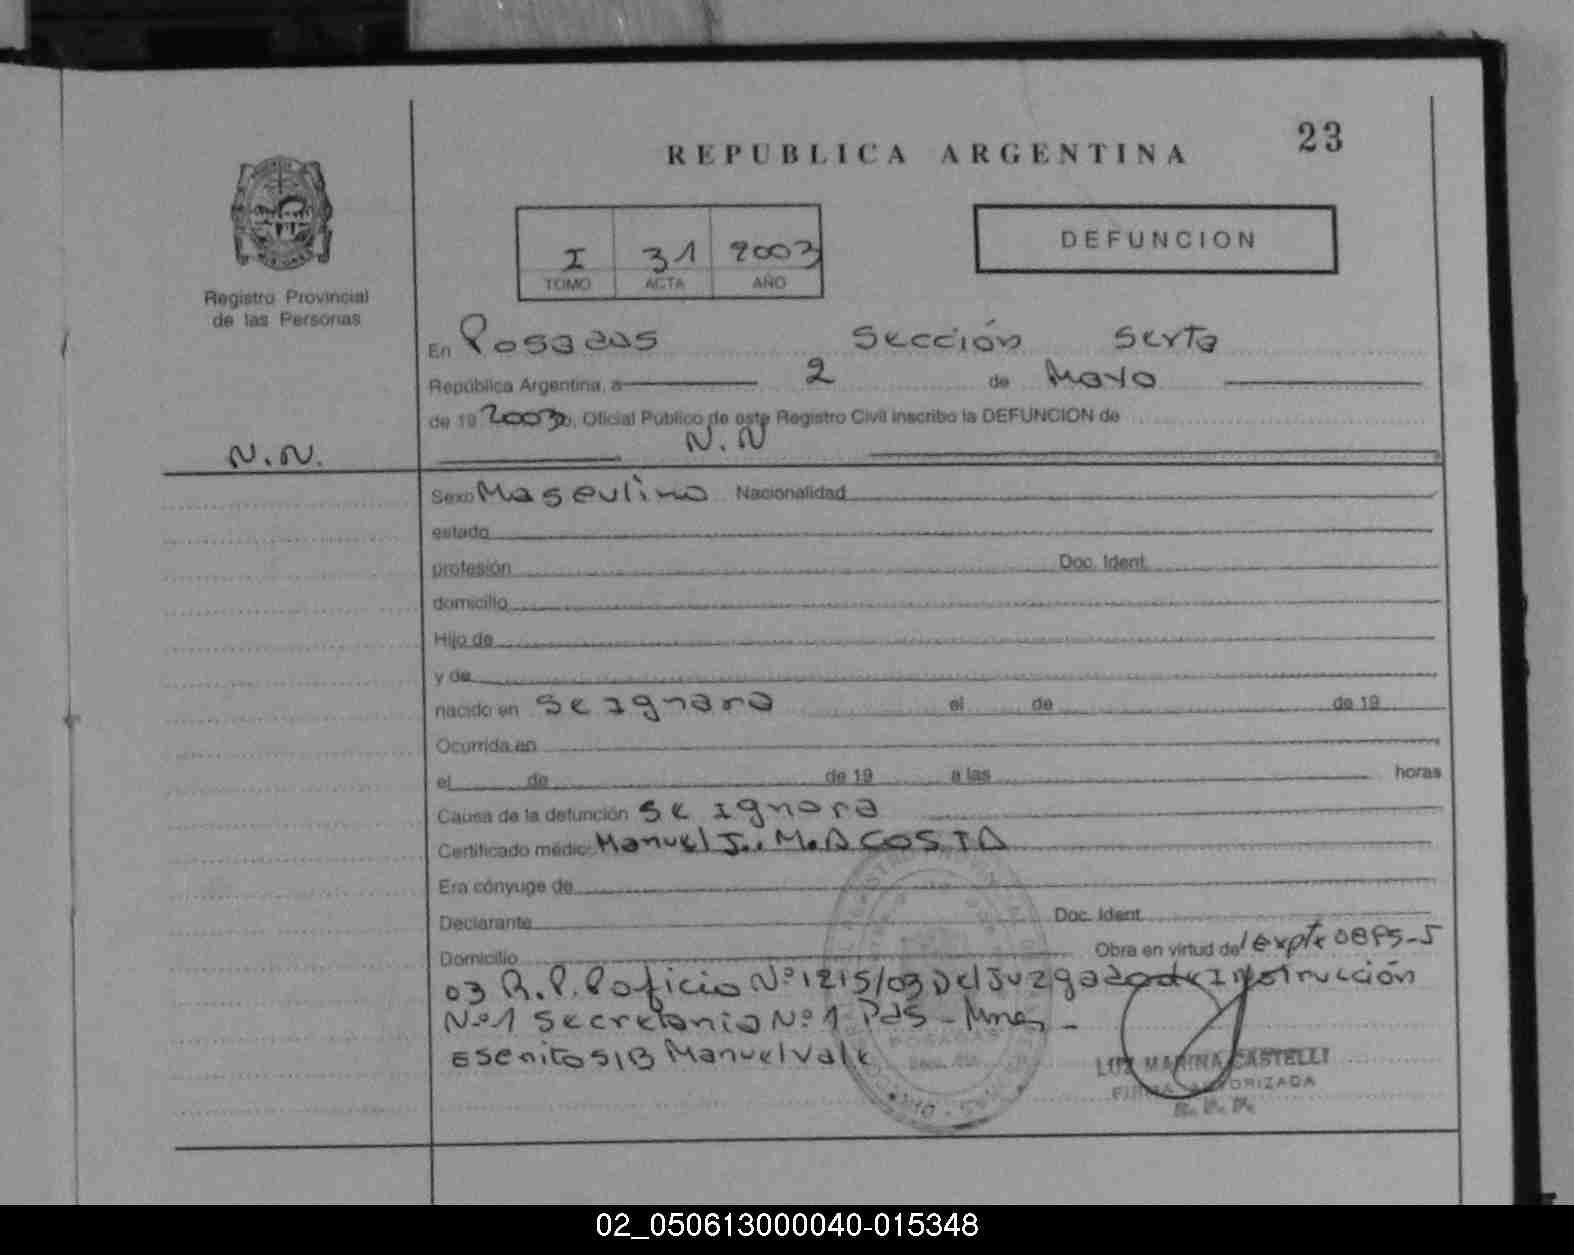 23
REPUBLICA ARGENTINA
I 31 2003
TOMO ACTA AÑO
DEFUNCION
Registro Provincial
de las Personas
En Posadas Sección Sexta
República Argentina, a 2 de Mayo
de 19 2003 Oficial Público de este Registro Civil inscribo la DEFUNCION de
N.N. N.N
Sexo Masculino Nacionalidad
estado
profesión Doc. Ident.
domicilio
Hijo de
y de
nacido en Se Ignora el de de 19
Ocurrida en
el de de 19 a las horas
Causa de la defunción Se Ignora
Certificado médico Manuel J.. M. ACOSTA
Era cónyuge de
Declarante Doc. Ident.
Domicilio Obra en virtud de expte
03 R.P.P oficio Nº 1215/03 Del Juzgado de Instrucción
Nº 1 Secretaria Nº 1 Pdas - Mnes -
Escrito S/B Manuel Vale
POSADAS
LUZ MARINA CASTELLI
FIRMA AUTORIZADA
R. P. P.
02_050613000040-015348